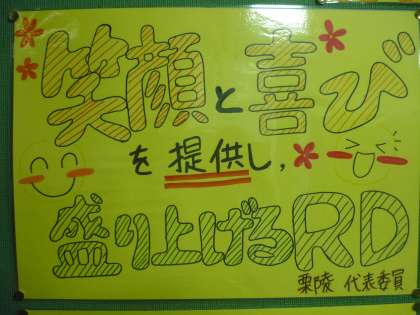 笑顔と喜び
を提供し,
盛り上げるRD
栗陵 代表委員